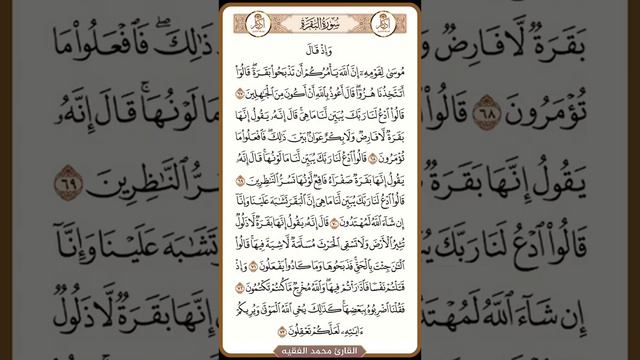 سُورَةُ البَقَرَةِ
وَإِذْ قَالَ
مُوسَىٰ لِقَوْمِهِۦٓ إِنَّ ٱللَّهَ يَأْمُرُكُمْ أَن تَذْبَحُوا۟ بَقَرَةً ۖ قَالُوٓا۟
أَتَتَّخِذُنَا هُزُوًا ۖ قَالَ أَعُوذُ بِٱللَّهِ أَنْ أَكُونَ مِنَ ٱلْجَٰهِلِينَ ٦٧
قَالُوا۟ ٱدْعُ لَنَا رَبَّكَ يُبَيِّن لَّنَا مَا هِىَ ۚ قَالَ إِنَّهُۥ يَقُولُ إِنَّهَا
بَقَرَةٌ لَّا فَارِضٌ وَلَا بِكْرٌ عَوَانٌۢ بَيْنَ ذَٰلِكَ ۖ فَٱفْعَلُوا۟ مَا
تُؤْمَرُونَ ٦٨ قَالُوا۟ ٱدْعُ لَنَا رَبَّكَ يُبَيِّن لَّنَا مَا لَوْنُهَا ۚ قَالَ إِنَّهُۥ
يَقُولُ إِنَّهَا بَقَرَةٌ صَفْرَآءُ فَاقِعٌ لَّوْنُهَا تَسُرُّ ٱلنَّٰظِرِينَ ٦٩
قَالُوا۟ ٱدْعُ لَنَا رَبَّكَ يُبَيِّن لَّنَا مَا هِىَ إِنَّ ٱلْبَقَرَ تَشَٰبَهَ عَلَيْنَا وَإِنَّآ
إِن شَآءَ ٱللَّهُ لَمُهْتَدُونَ ٧٠ قَالَ إِنَّهُۥ يَقُولُ إِنَّهَا بَقَرَةٌ لَّا ذَلُولٌ
تُثِيرُ ٱلْأَرْضَ وَلَا تَسْقِى ٱلْحَرْثَ مُسَلَّمَةٌ لَّا شِيَةَ فِيهَا ۚ قَالُوا۟
ٱلْـَٰٔنَ جِئْتَ بِٱلْحَقِّ ۚ فَذَبَحُوهَا وَمَا كَادُوا۟ يَفْعَلُونَ ٧١ وَإِذْ
قَتَلْتُمْ نَفْسًا فَٱدَّٰرَْٰٔتُمْ فِيهَا ۖ وَٱللَّهُ مُخْرِجٌ مَّا كُنتُمْ تَكْتُمُونَ ٧٢
فَقُلْنَا ٱضْرِبُوهُ بِبَعْضِهَا ۚ كَذَٰلِكَ يُحْىِ ٱللَّهُ ٱلْمَوْتَىٰ وَيُرِيكُمْ
ءَايَٰتِهِۦ لَعَلَّكُمْ تَعْقِلُونَ ٧٣
القارئ محمد الفقيه